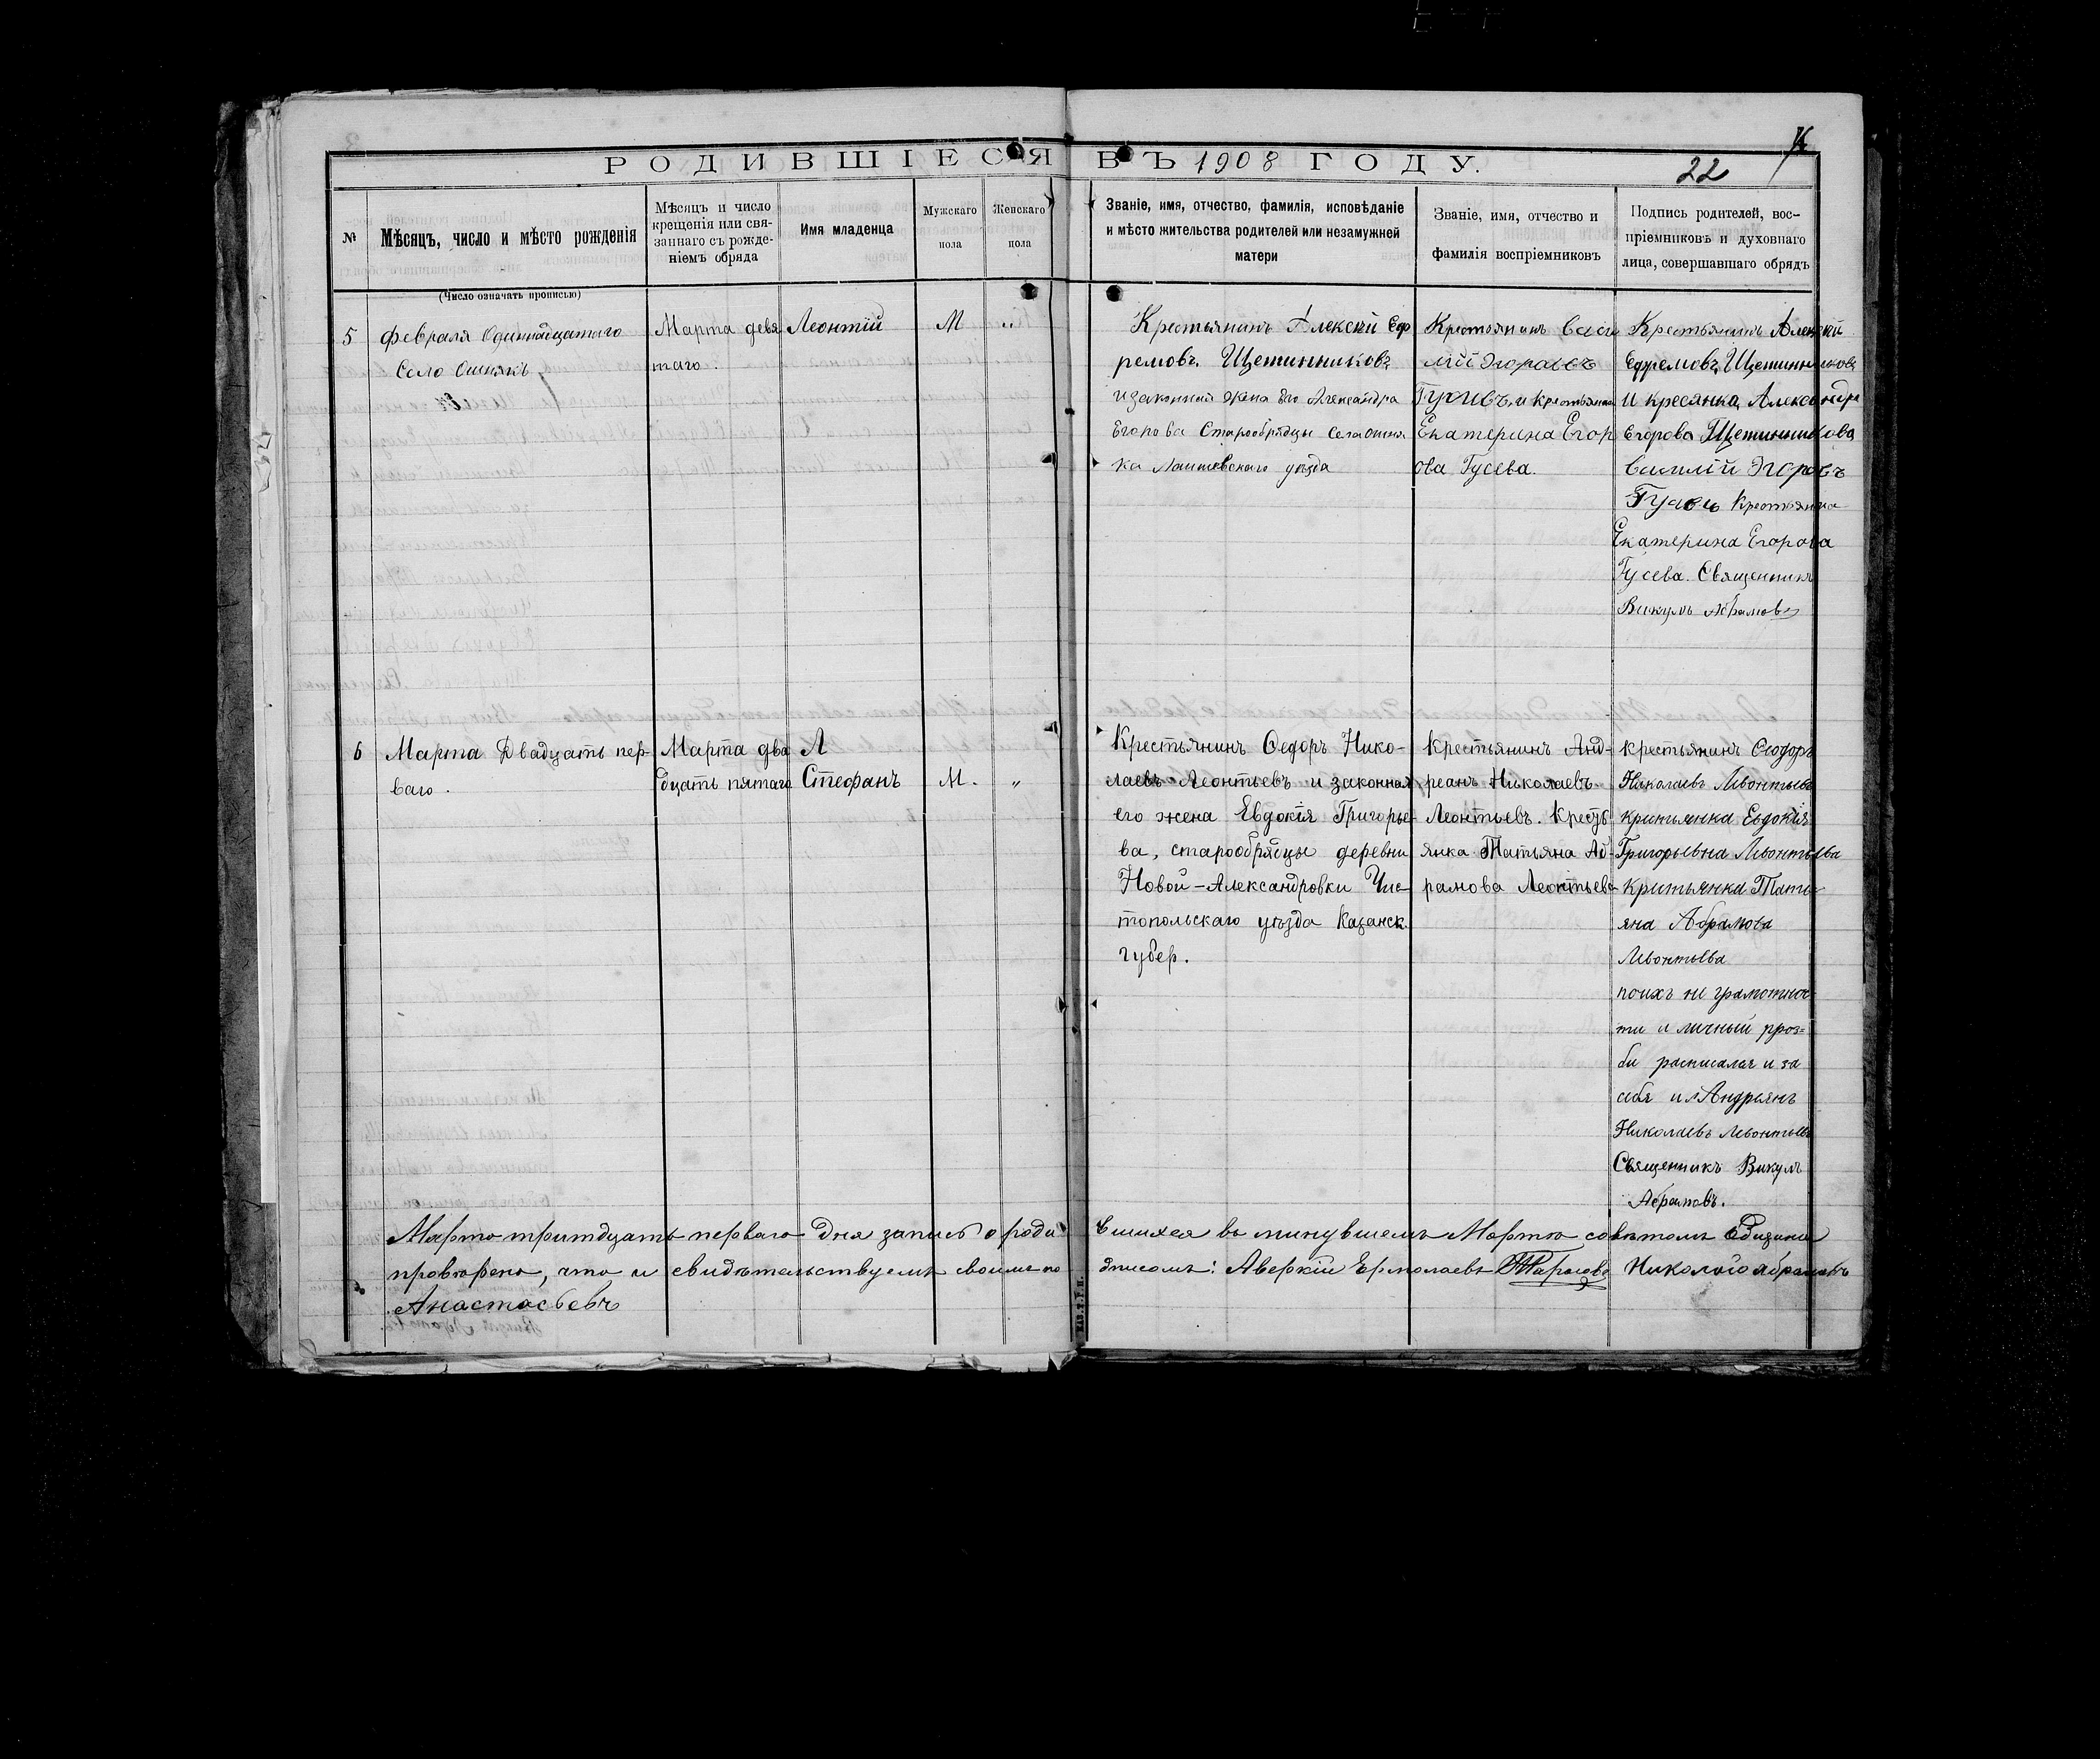 РОДИВШІЕСЯ ВЪ 1908 ГОДУ.
22
№
Мѣсяцъ, число и мѣсто рожденія
(Число означать прописью)
Мѣсяцъ и число
крещенія или свя-
заннаго съ рожде-
ніемъ обряда
Имя младенца
Мужскаго
пола
Женскаго
пола
Званіе, имя, отчество, фамилія, исповѣданіе
и мѣсто жительства родителей или незамужней
матери
Званіе, имя, отчество и
фамилія воспріемниковъ
Подпись родителей, вос-
пріемниковъ и духовнаго
лица, совершавшаго обрядъ
5
февраля Одиннадцатаго
Село Ошнякъ
Марта девя
таго.
Леонтій
М
"
Крестьянинъ Алексѣй Еф
ремовъ Щетинниковъ
и законная жена Его Александра
Егорова Старообрядцы села Ошня
ка Лаишевскаго уѣзда
Крестьянинъ Васи
лій Эгоровъ
Гусивъ и крестьянка
Екатерина Егор
ова Гусева.
Крестьянинъ Алексѣй
Ефремовъ Щетинниковъ
И кресянка Александра
Егорова Щетинникова
Василій Эгоровъ
Гусевъ Крестьянка
Екатерина Егорова
Гусева. Священникъ
Викулъ Абрамовъ
6
Марта Двадцать пер-
ваго.
Марта два
дцать пятаго
Л
Стефанъ
М.
"
Крестьянинъ Ѳедоръ Нико-
лаевъ Леонтьевъ и законная
его жена Евдокія Григорье-
ва, старообрядцы деревни
Новой-Александровки Чис-
топольскаго уѣзда Казанск.
губер.
Крестьянинъ Анд-
реанъ Николаевъ
Леонтьевъ. Кресть
янка Татьяна Аб-
рамова Леонтьева
крестьянинъ Ѳеодоръ
Николаевъ Левонтьевъ
критьянка Евдокія
Григорьевна Левонтьева
критьянка Тать-
яна Абрамова
Левонтьева
поихъ не грамотнос-
ти и личный проз=
би расписалса и за
себя Андрьянъ
Николаевъ Левонтьевъ
Священникъ Викулъ
Абрамовъ.
Марта тритдцать перваго дня запись о роди
вшихся въ минувшемъ Мартѣ совѣтомъ общины
провѣрена, что и свидѣтельствуемъ своимъ по
дписомъ: Аверкій Ермолаевъ Тарасовъ Николай Абрамовъ
Анастасьевъ